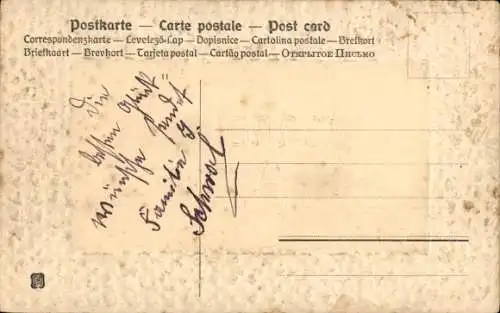 Postkarte — Carte postale — Post card
Correspondenzkarte — Levelező-Lap — Dopisnice — Cartolina postale — Brefkort
Briefkaart — Brevkort — Tarjeta postal — Cartão postal — Открытое Письмо
Die
besten Glück-
wünsche sendet
Familie